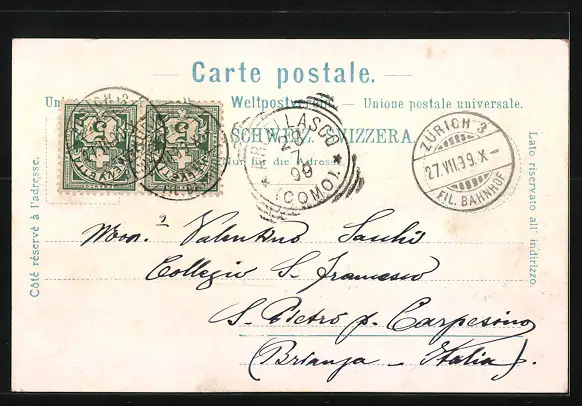 Carte postale.
Weltpostverein. — Unione postale universale.
SCHWEIZ. SVIZZERA.
Nur für die Adresse.
Côté réservé à l'adresse.
Lato riservato all' indirizzo.
5 5
LASCO
99
(COMO)
ZÜRICH 3
27.VII.99.X–
FIL. BAHNHOF
Mon. Valentino
Collegio S. Francesco
S. Pietro p. Carpesino
(Brianza – Italia).